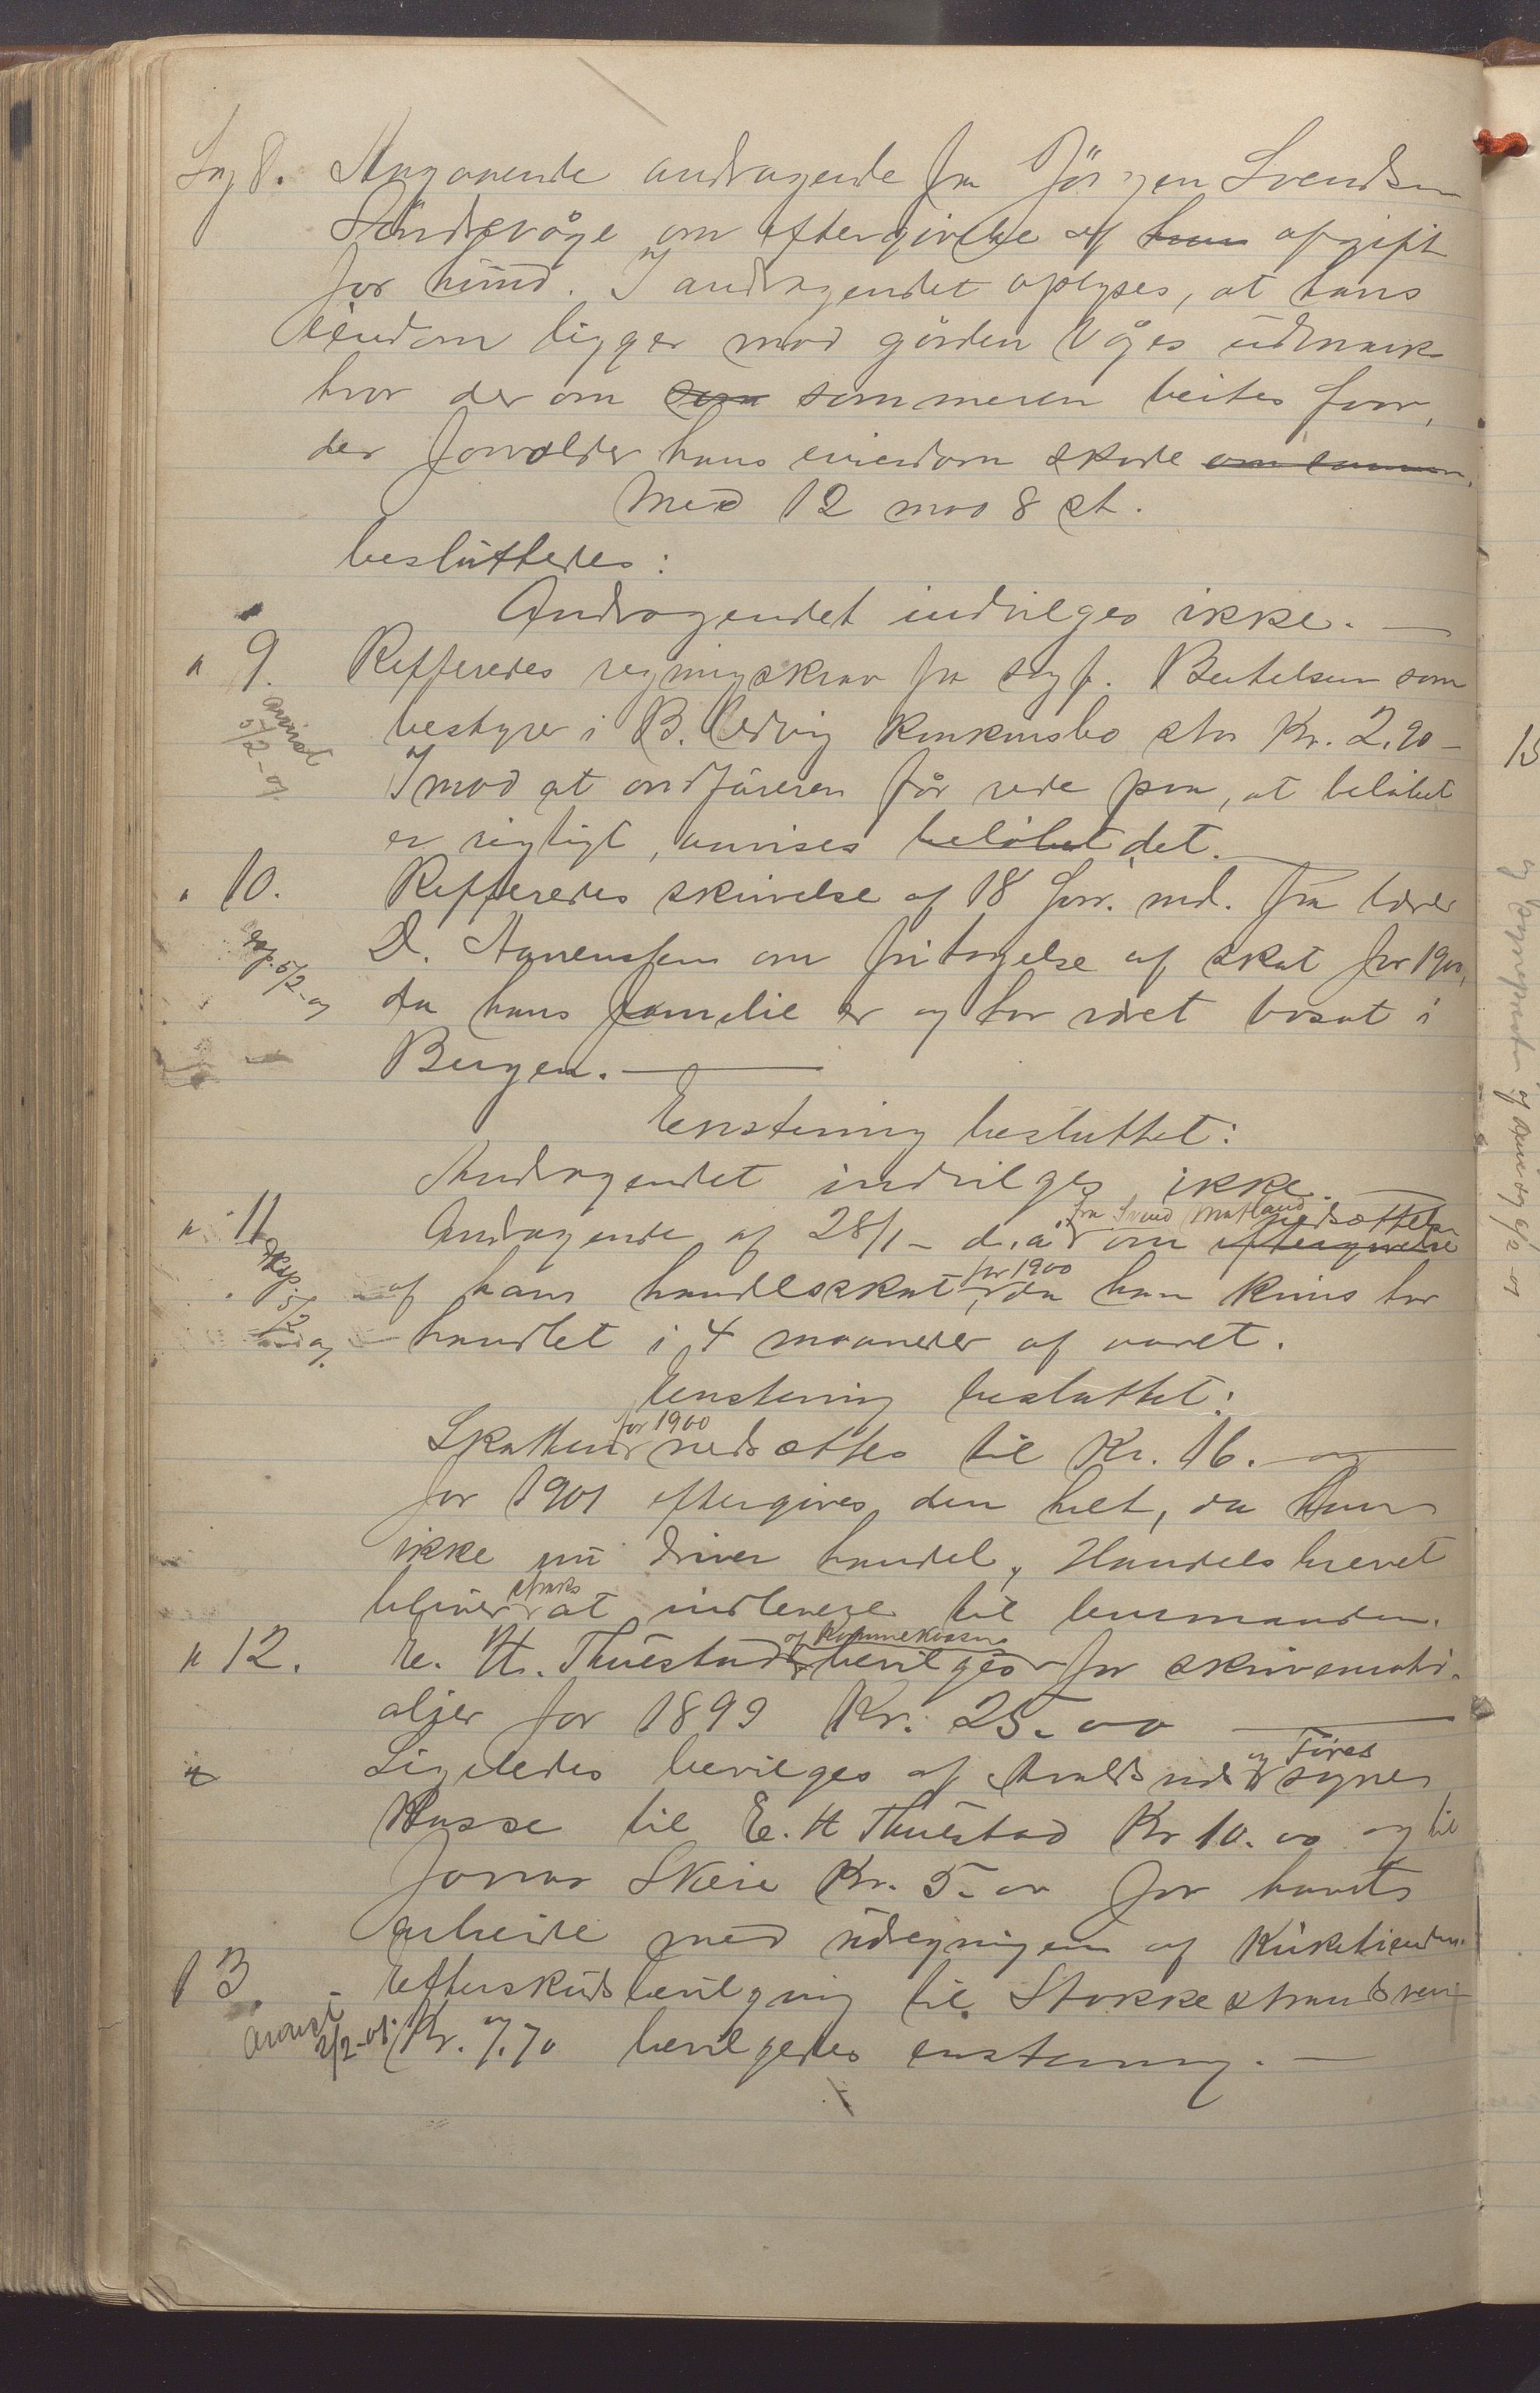 Sag 8. Angaaende andragende fra Jörgen Svendsen
Söndrevåge om eftergivelse af hans afgift
for hund. I andragendet oplyses, at hans
eiendom ligger mod gården Våges udmark
hvor der om som sommeren beites faar,
der forvolder hans eiendom skade om sommeren.
Med 12 mod 8 st.
besluttedes:
Andragendet indvilges ikke. —
" 9. Reffereres regningskrav fra sagf. Bertelsen som
anvist 5/2-01 bestyrer i B. Pedvig Konkursbo stor Kr. 2.90 –
Imod at ordföreren får rede paa, at belöbet
er rigtigt, anvises belöbet det. —
" 10. Reffereres skrivelse af 18 forr. md. fra lærer
exp. 5/2-01 D. Aanensen om fritagelse af skat for 1900,
da hans familie er og har været bosat i
Bergen. —
Enstemmig besluttet:
Andragendet indvilges ikke. —
" 11 Andragende af 28/1 – d.å. fra Svend Matland om eftergivelse nedsættelse
Exp. 5/2 01. af hans handelsskat for 1900, da han kuns har
handlet i 4 maaneder af aaret.
Enstemmig besluttet:
Skatten for 1900 nedsættes til Kr. 16. – og
for 1901 eftergives den helt, da han
ikke nu driver handel, Handelsbrevet
bliver straks at indlevere til lensmanden.
" 12. E. H. Thuestad bevilges af Kommunekassen for skrivemateri-
aljer for 1899 Kr. 25.00 —
Ligeledes bevilges af kvalds ved og Tines sognes
Kasse til E. H Thuestad Kr 10.00 og til
Jonas Skeie Kr. 5.00 for havt
arbeide med udregningen af Kirketienden.
13. Efterskudsbevilgning til Stokkestrandsvei
Anvist 2/2-01. Kr. 7.70 bevilgedes enstemmig. —